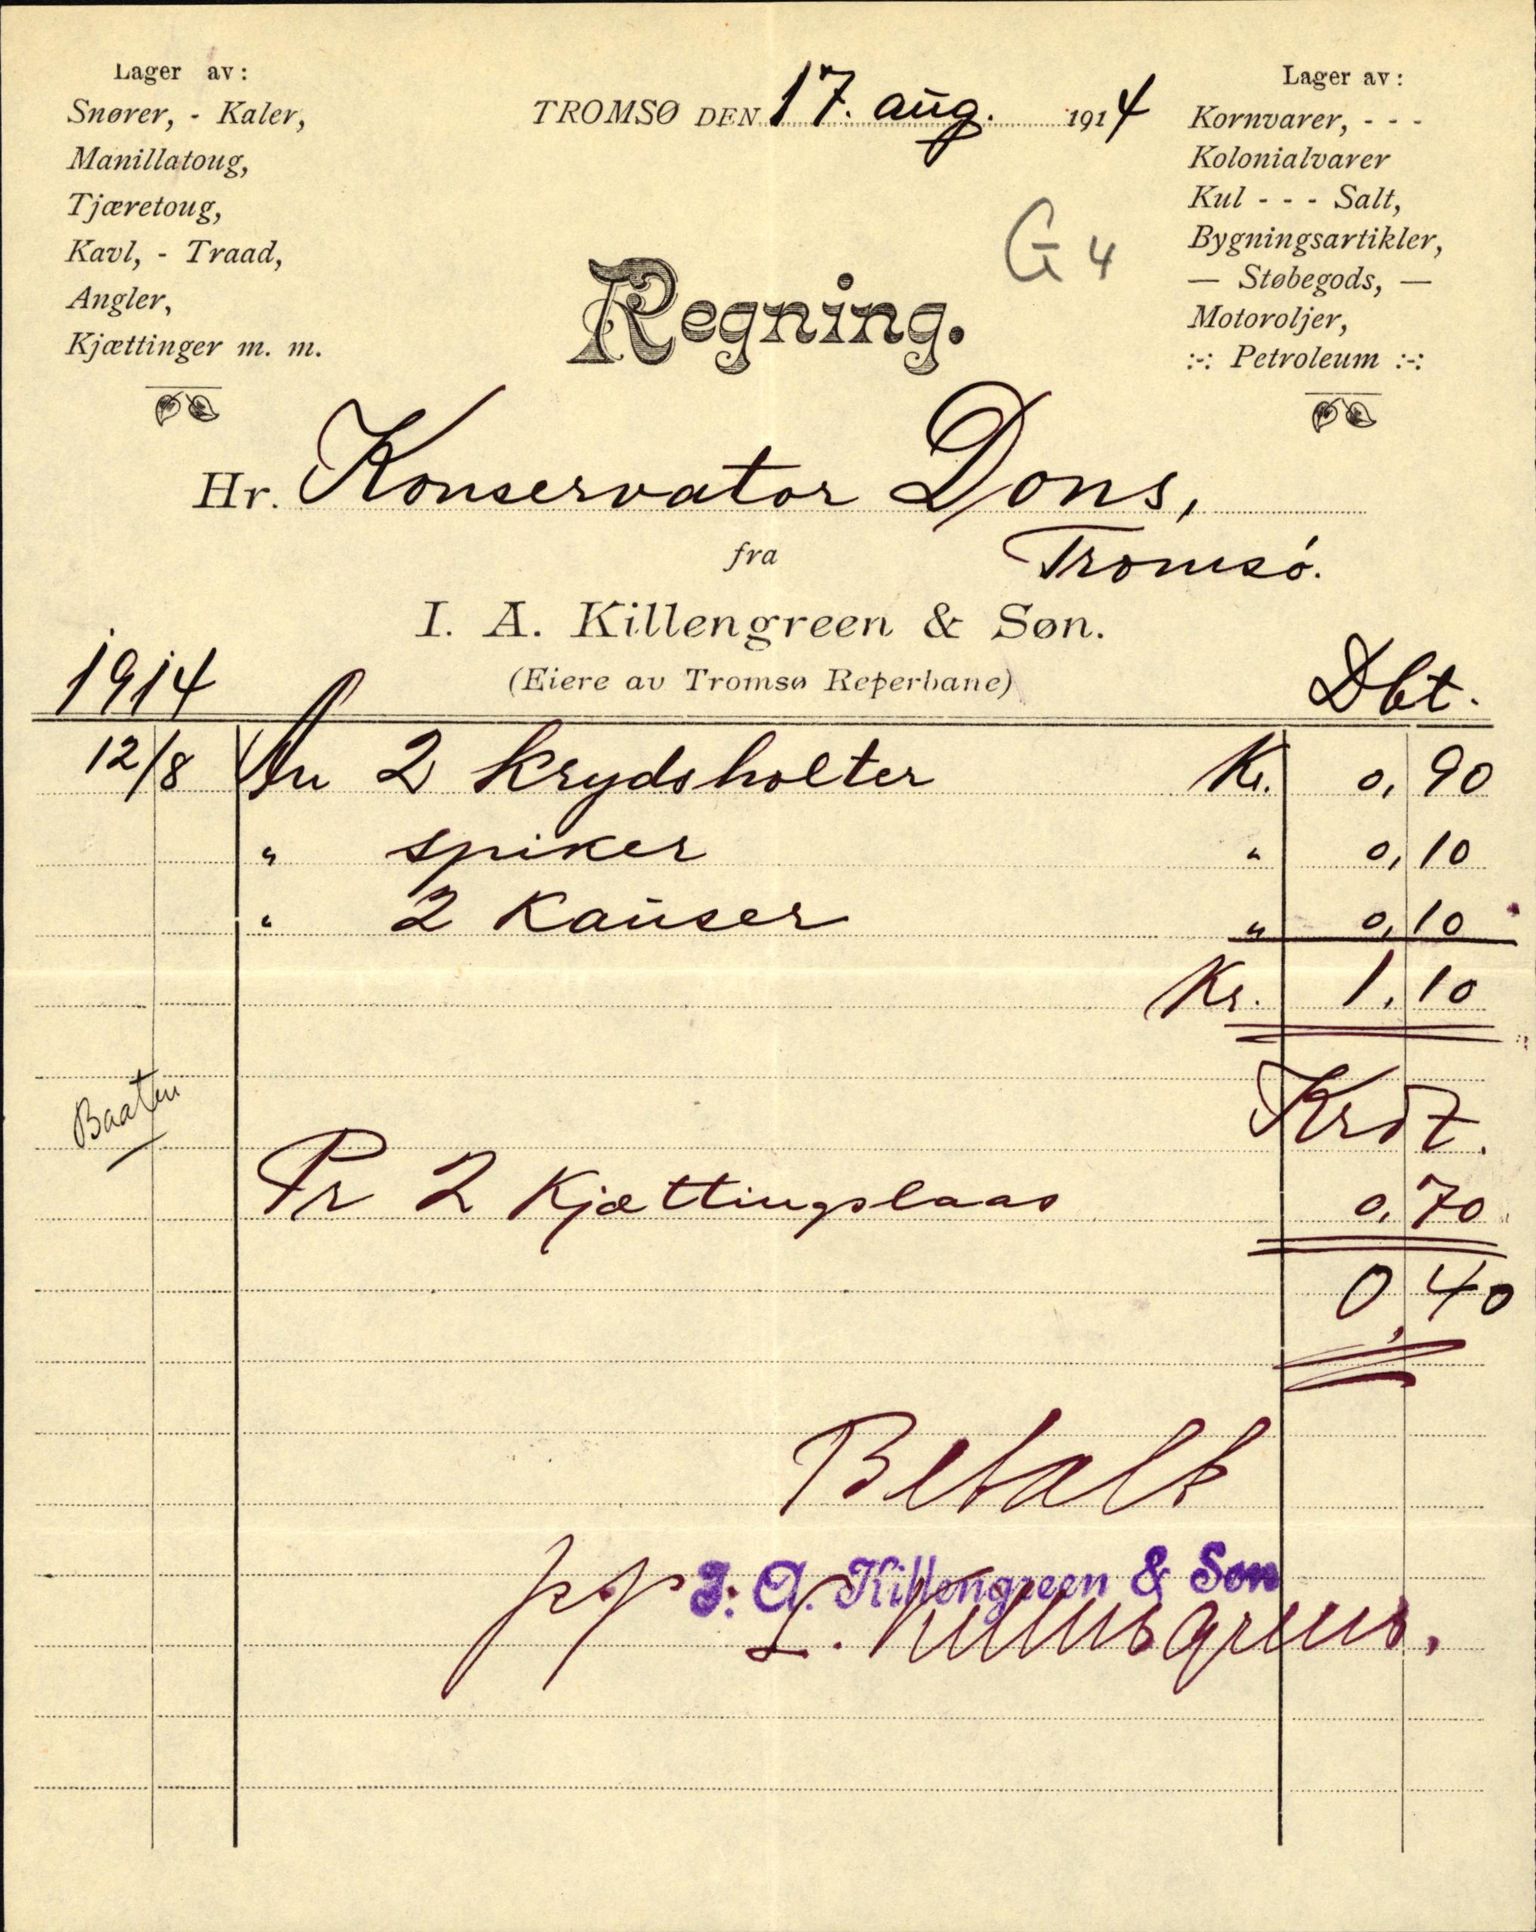 Lager av:
Snører, - Kaler,
Manillatoug,
Tjæretoug,
Kavl, - Traad,
Angler,
Kjættinger m. m.
TROMSØ DEN 17. aug. 1914
Lager av:
Kornvarer, - - -
Kolonialvarer
Kul - - - Salt,
Bygningsartikler,
— Støbegods, —
Motoroljer,
:-: Petroleum :-:
G 4
Regning.
Hr. Konservator Dons,
fra Tromsø.
I. A. Killengreen & Søn.
(Eiere av Tromsø Reperbane)
1914 Dbt.
12/8 An 2 krydsholter Kr. 0,90
" spiker " 0,10
" 2 Kauser " 0,10
Kr. 1,10
Baaten
Krdt.
Pr 2 Kjættingslaas 0,70
0,40
Betalt
pp J. A. Killengreen & Søn
L. Killengreen.